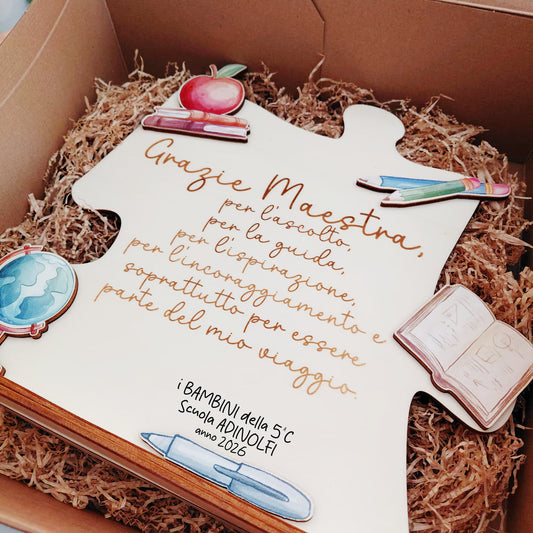 Grazie Maestra,
per l'ascolto,
per la guida,
per l'ispirazione,
per l'incoraggiamento e
soprattutto per essere
parte del mio viaggio.
i BAMBINI della 5°C
Scuola ADINOLFI
anno 2026